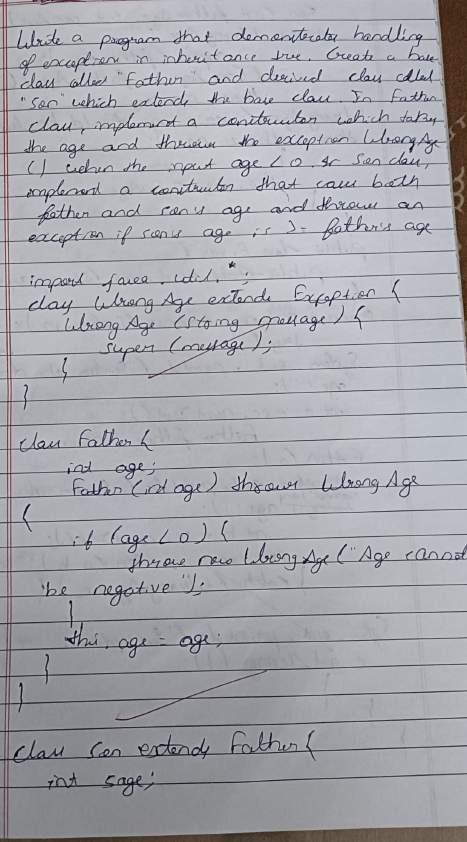 Write a program that demonstrates handling
of exception in inheritance tree. Create a base
class called "Father" and derived class called
"son" which extends the base class. In Father
class, implement a constructor which takes
the age and throws the exception WrongAge
() when the input age < 0. In Son class,
implement a constructor that cases both
father and son's age and throws an
exception if son's age is >= father's age
import java.util.*;
class WrongAge extends Exception {
WrongAge (String message) {
super (message);
}
}
class Father {
int age;
Father (int age) throws WrongAge
{
if (age < 0) {
throw new WrongAge ("Age cannot
be negative");
}
this.age = age;
}
}
class Son extends Father {
int sage;